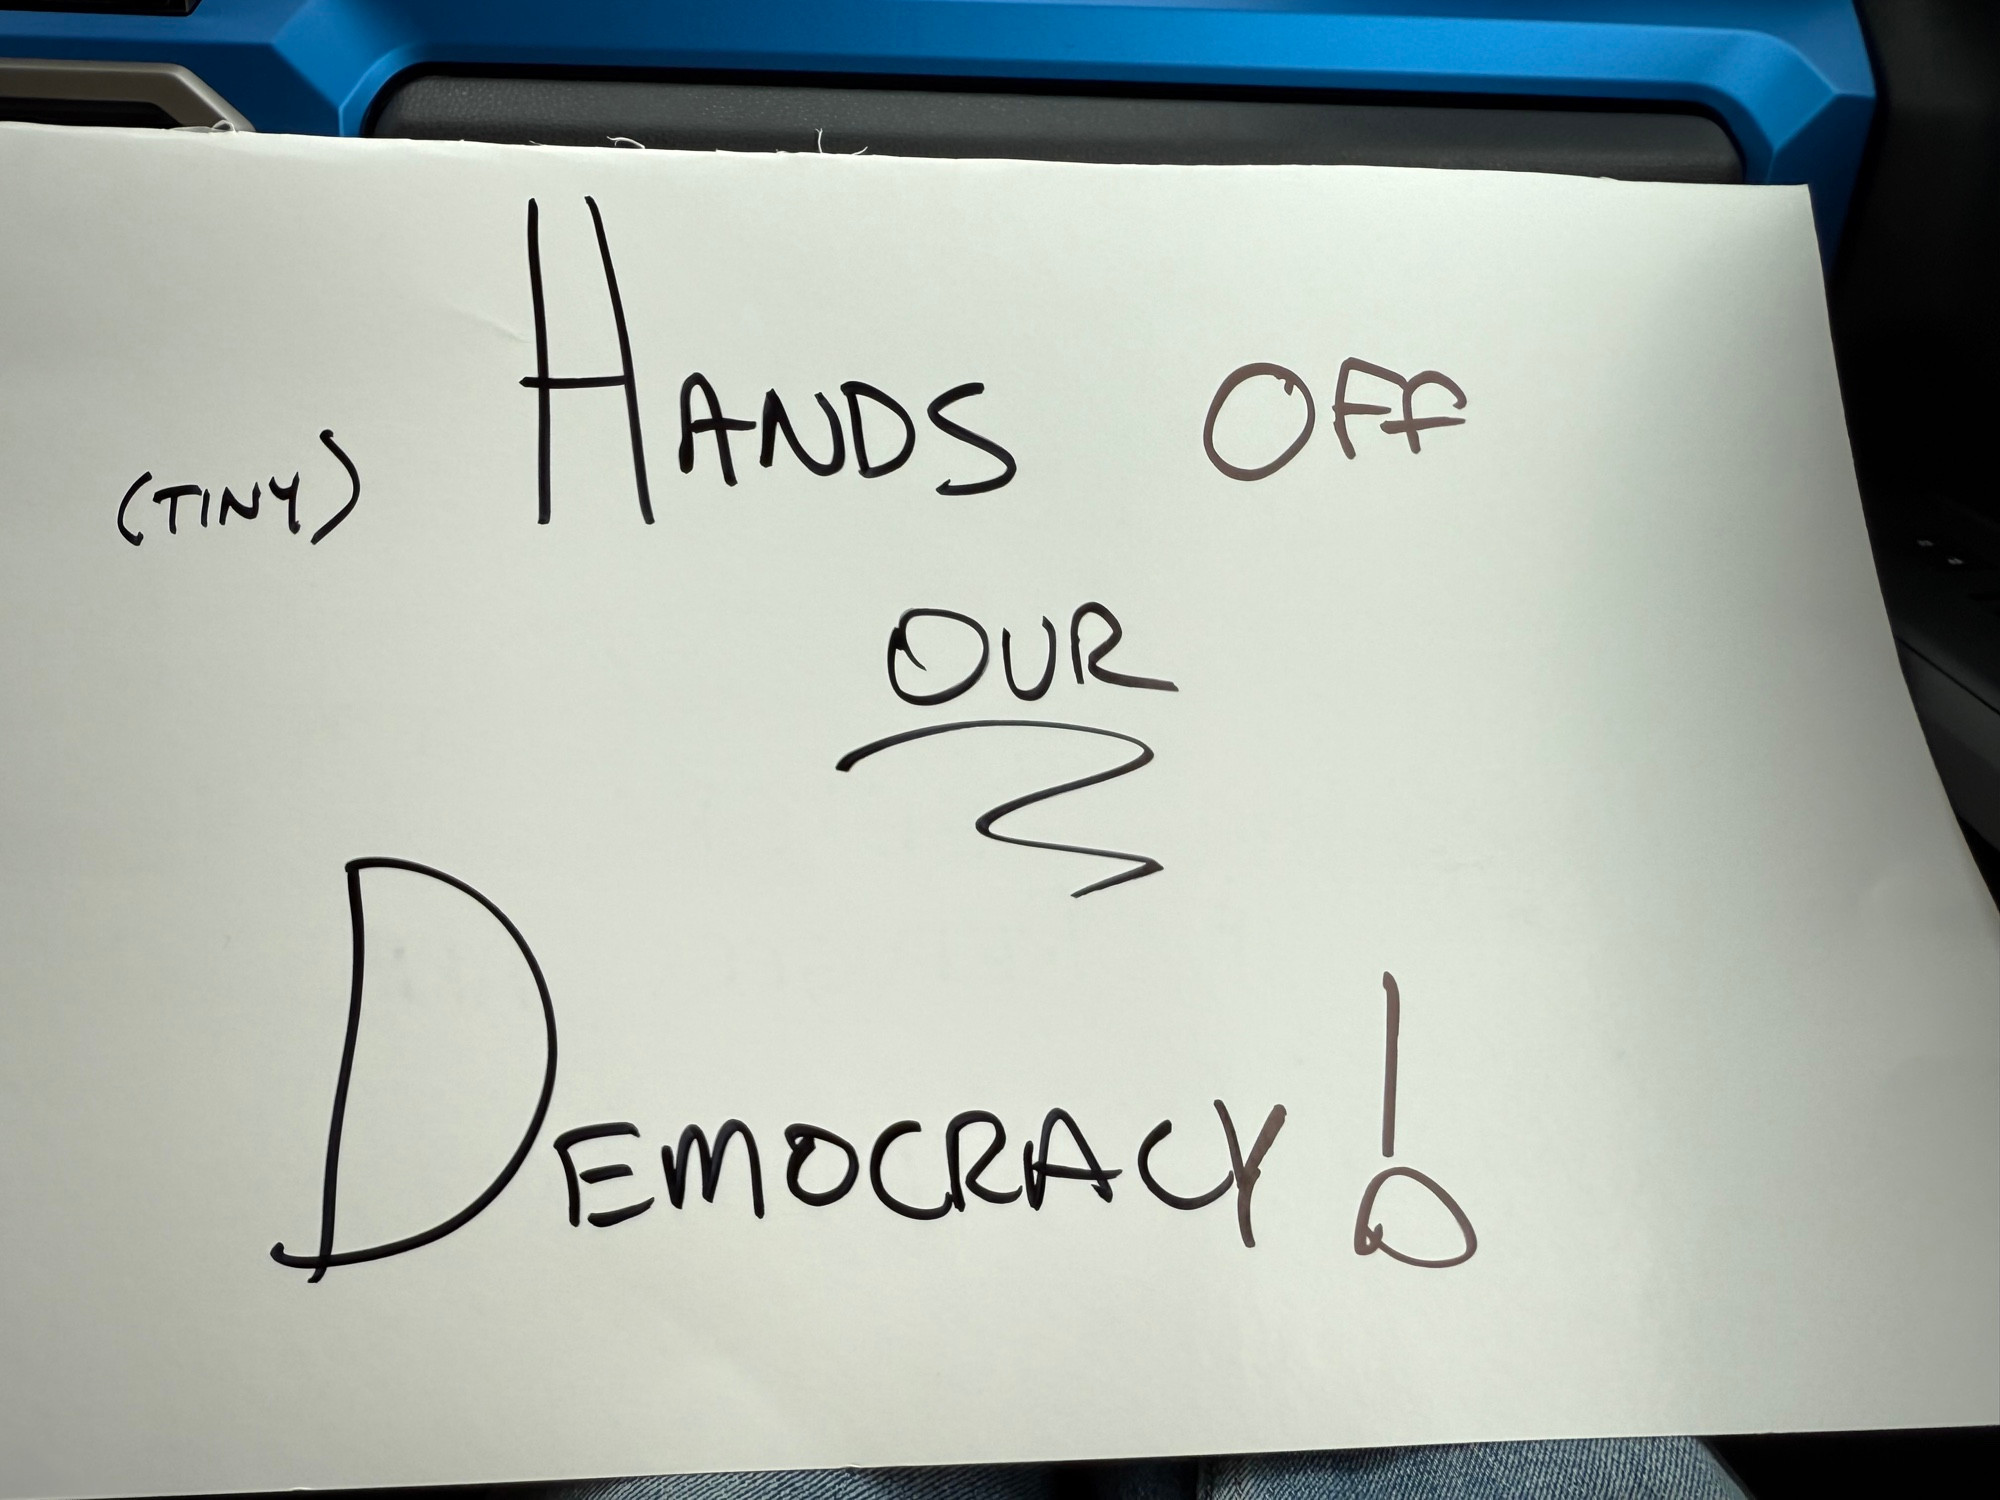 (TINY) HANDS OFF
OUR
DEMOCRACY!